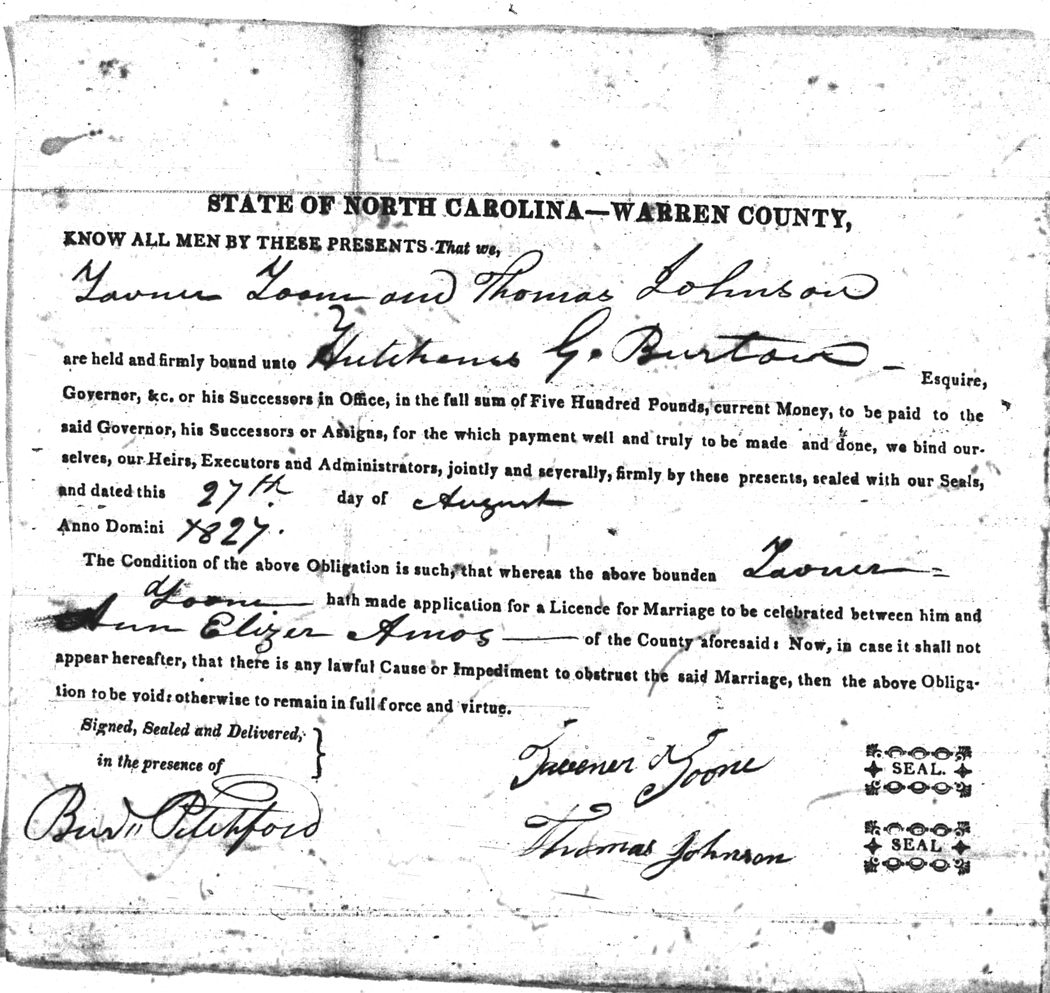 STATE OF NORTH CAROLINA—WARREN COUNTY,
KNOW ALL MEN BY THESE PRESENTS That we,
Tavner Toone and Thomas Johnson
are held and firmly bound unto Hutchens G. Burton — Esquire,
Governor, &c. or his Successors in Office, in the full sum of Five Hundred Pounds, current Money, to be paid to the
said Governor, his Successors or Assigns, for the which payment well and truly to be made and done, we bind our-
selves, our Heirs, Executors and Administrators, jointly and severally, firmly by these presents, sealed with our Seals,
and dated this 27th day of August
Anno Domini 1827.
The Condition of the above Obligation is such, that whereas the above bounden Tavner =
Toone — hath made application for a Licence for Marriage to be celebrated between him and
Ann Elizer Amos — of the County aforesaid: Now, in case it shall not
appear hereafter, that there is any lawful Cause or Impediment to obstruct the said Marriage, then the above Obliga-
tion to be void: otherwise to remain in full force and virtue.
Signed, Sealed and Delivered,
in the presence of
Tavener Toone SEAL.
Pitchford
Thomas Johnson SEAL